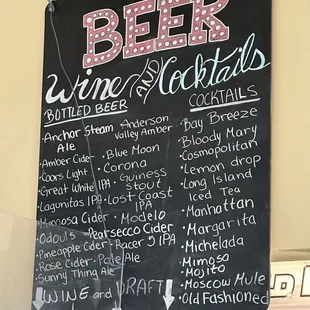 BEER
Wine AND Cocktails
BOTTLED BEER
Anchor Steam Ale
Amber Cider
Coors Light
Great White IPA
Lagunitas IPA
Mimosa Cider
Odouls
Pineapple Cider
Rose Cider
Sunny Thing Ale
Anderson Valley Amber
Blue Moon
Corona
Guiness Stout
Lost Coast IPA
Modelo
Pearsecco Cider
Racer 5 IPA
Pale Ale
COCKTAILS
Bay Breeze
Bloody Mary
Cosmopolitan
Lemon drop
Long Island
Iced Tea
Manhattan
Margarita
Michelada
Mimosa
Mojito
Moscow Mule
Old Fashioned
WINE and DRAFT